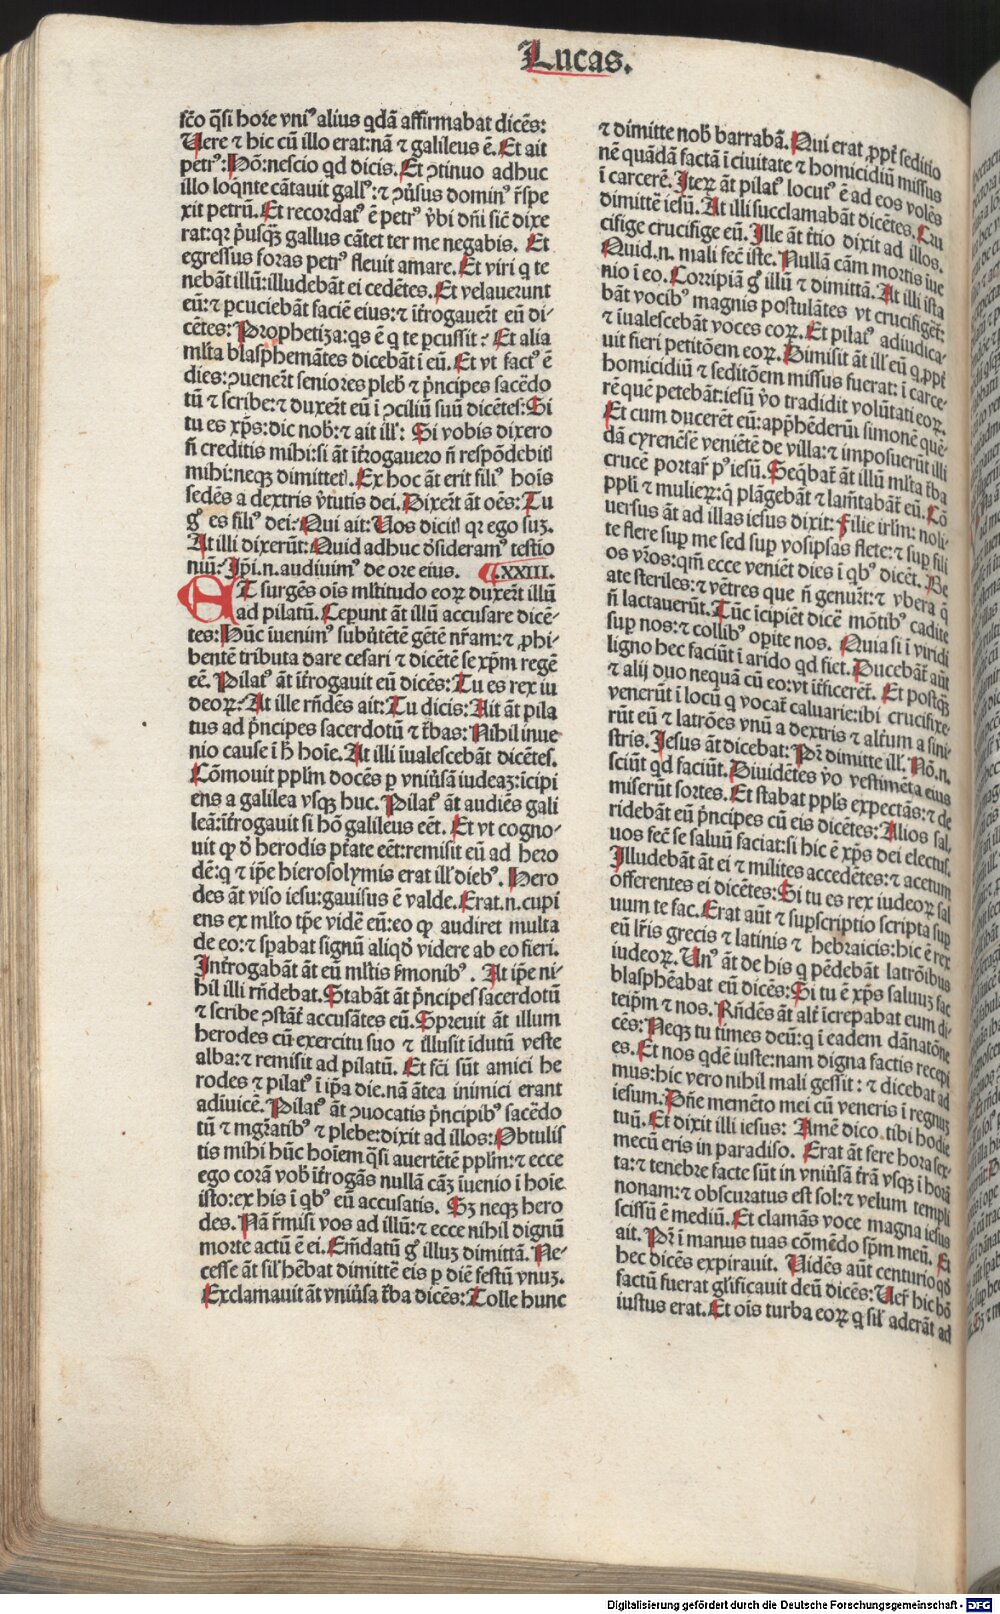 Lucas.
fc̄o q̄si hore vniꝰ alius qdā affirmabat dicēs:
Vere ⁊ hic cū illo erat:nā ⁊ galileus ē. Et ait
petrꝰ:Hō:nescio qd dicis. Et ↄtinuo adhuc
illo loq̄nte cātauit gallꝰ:⁊ ↄūsus dominꝰ r̄spe
xit petrū. Et recordatꝰ ē petrꝰ v̄bi dn̄i sic̄ dixe
rat:qꝛ p̄usqꝫ gallus cātet ter me negabis. Et
egressus foras petrꝰ fleuit amare. Et viri q te
nebāt illū:illudebāt ei cedētes. Et velauerunt
eū:⁊ ꝑcuciebāt faciē eius:⁊ īt̄rogauer̄t eū di-
cētes:Prophetiza:qs ē q te ꝑcussit? Et alia
ml̄ta blasp̄hemātes dicebāt ī eū. Et vt factꝰ ē
dies:ↄuener̄t seniores pleb̄ ⁊ p̄ncipes sacēdo
tū ⁊ scribe:⁊ duxer̄t eū ī ↄciliū suū dicētes:Si
tu es xp̄s:dic nob̄:⁊ ait ill̄: Si vobis dixero
n̄ creditis mihi:si āt īt̄rogauero n̄ respōdebitꝭ
mihi:neqꝫ dimittetꝭ. Ex hoc āt erit filiꝰ hoīs
sedēs a dextris v̄tutis dei. Dixer̄t āt oēs: Tu
gͦ es filiꝰ dei? Qui ait:Uos dicitꝭ qꝛ ego suꝫ.
At illi dixerūt:Quid adhuc d̄sideramꝰ testio
niū? Ip̄i.n. audiuimꝰ de ore eius. ¶.XXIII.
ET surgēs oīs ml̄titudo eoꝝ duxer̄t illū
ad pilatū. Cepunt āt illū accusare dicē-
tes:Hūc īuenimꝰ subūtētē gētē nr̄am:⁊ ꝓhi-
bentē tributa dare cesari ⁊ dicētē se xp̄m regē
eē. Pilatꝰ āt īt̄rogauit eū dicēs:Tu es rex iu
deoꝝ? At ille rn̄dēs ait:Tu dicis:Ait āt pila
tus ad p̄ncipes sacerdotū ⁊ t̄bas:Nihil inue
nio cause ī h̄ hoīe. At illi īualescebāt dicētes.
Cōmouit pplm̄ docēs ꝑ vniūsā iudeaꝫ:īcipi
ens a galilea vsqꝫ huc. Pilatꝰ āt audiēs gali
leā:īt̄rogauit si hō galileus eēt. Et vt cogno-
uit ꝙ d̄ herodis pt̄ate eēt:remisit eū ad hero
dē:q ⁊ ip̄e hierosolymis erat ill̄ diebꝰ. Hero
des āt viso iesu:gauisus ē valde. Erat.n.cupi
ens ex ml̄to tp̄e vidē eū:eo ꝙ audiret multa
de eo:⁊ sp̄abat signū aliqd̄ videre ab eo fieri.
Int̄rogabāt āt eū ml̄tis s̄monibꝰ. At ip̄e ni-
hil illi rn̄debat. Stabāt āt p̄ncipes sacerdotū
⁊ scribe ↄstāt̄ accusātes eū. Spreuit āt illum
herodes cū exercitu suo ⁊ illusit īdutū veste
alba:⁊ remisit ad pilatū. Et fc̄i sūt amici he
rodes ⁊ pilatꝰ ī ip̄a die.nā ātea inimici erant
adīuicē. Pilatꝰ āt ↄuocatis p̄ncipibꝰ sacēdo
tū ⁊ mgr̄atibꝰ ⁊ plebe:dixit ad illos:Obtulis
tis mihi hūc hoīem q̄si auertētē pplm̄:⁊ ecce
ego corā vob̄ īt̄rogās nullā cāꝫ īuenio ī hoīe
isto:ex his ī qbꝰ eū accusatis. Sꝫ neqꝫ hero
des. Nā r̄misi vos ad illū:⁊ ecce nihil dignū
morte actū ē ei. Emēdatū gͦ illuꝫ dimittā. Ne-
cesse āt sil̄ hēbat dimittē eis ꝑ diē festū vnuꝫ.
Exclamauit āt vniūsa t̄ba dicēs:Tolle hunc
⁊ dimitte nob̄ barrabā. Qui erat ꝓpt̄ seditio
nē quādā factā ī ciuitate ⁊ homicidiū missus
ī carcerē. Iteꝝ āt pilatꝰ locutꝰ ē ad eos volēs
dimittē iesū. At illi succlamabāt dicētes. Cru
cifige crucifige eū. Ille āt t̄tio dixit ad illos.
Quid.n. mali fec̄ iste. Nullā cām mortis iue
nio ī eo. Corripiā gͦ illū ⁊ dimittā. At illi ista
bāt vocibꝰ magnis postulātes vt crucifiget̄:
⁊ īualescebāt voces eoꝝ. Et pilatꝰ adiudica-
uit fieri petitōem eoꝝ. Dimisit āt ill̄ eū q ꝓpt̄
homicidiū ⁊ seditōem missus fuerat: ī carce-
rē quē petebāt:iesū v̄o tradidit volūtati eoꝝ.
Et cum ducerēt eū:appͥhēderūt simonē quē-
dā cyrenēsē veniētē de villa:⁊ imposuerūt illi
crucē portar̄ pꝰ iesū. Seqbat̄ āt illū ml̄ta t̄ba
ppl̄i ⁊ mulieꝝ:q̄ plāgebāt ⁊ lam̄tabāt̄ eū. Cō
uersus āt ad illas iesus dixit: Filie irl̄m: noli-
te flere suꝑ me sed suꝑ vosipsas flete:⁊ suꝑ fili
os vr̄os:qm̄ ecce veniēt dies ī qbꝰ dicēt. Be
ate steriles:⁊ vētres que n̄ genuer̄t:⁊ vbera q̄
n̄ lactauerūt. Tūc īcipiēt dicē mōtibꝰ cadite
suꝑ nos:⁊ collibꝰ oꝑite nos. Quia si ī viridi
ligno hec faciūt ī arido qd fiet. Ducebāt̄ aūt
⁊ alij duo nequā cū eo:vt īt̄ficerēt̄. Et postqꝫ
venerūt ī locū q vocat̄ caluarie:ibi crucifixe-
rūt eū ⁊ latrōes vnū a dextris ⁊ alt̄um a sini
stris. Jesus āt dicebat: Pr̄ dimitte ill̄. Nō.n.
sciūt qd faciūt. Diuidētes v̄o vestimēta eius
miserūt sortes. Et stabat ppl̄s expectās:⁊ de
ridebāt eū p̄ncipes cū eis dicētes:Alios sal-
uos fec̄ se saluū faciat:si hic ē xp̄s dei electus.
Illudebāt āt ei ⁊ milites accedētes:⁊ acetum
offerentes ei dicētes:Si tu es rex iudeoꝝ sal
uum te fac. Erat aūt ⁊ suꝑscriptio scripta suꝑ
eū lr̄is grecis ⁊ latinis ⁊ hebraicis:hic ē rex
iudeoꝝ. Unꝰ āt de his q pēdebāt latrōibus
blasphēabat eū dicēs:Si tu ē xp̄s saluuꝫ fac
teip̄m ⁊ nos. Rn̄dēs āt alt̄ īcrepabat eum di-
cēs:Neqꝫ tu times deū:q ī eadem dānatōne
es. Et nos qdē iuste:nam digna factis recepi
mus:hic vero nihil mali gessit: ⁊ dicebat ad
iesum. Dn̄e memēto mei cū veneris ī regnuꝫ
tuū. Et dixit illi iesus: Amē dico tibi hodie
mecū eris in paradiso. Erat āt fere hora sex-
ta:⁊ tenebre facte sūt in vniūsā t̄rā vsqꝫ ī horā
nonam:⁊ obscuratus est sol:⁊ velum templi
scissū ē mediū. Et clamās voce magna iesus
ait. Pr̄ ī manus tuas cōmēdo sp̄m meū. Et
hec dicēs expirauit. Uidēs aūt centurio qd̄
factū fuerat gl̄ificauit deū dicēs:Uer̄ hic hō
iustus erat. Et oīs turba eoꝝ q sil̄ aderāt ad
Digitalisierung gefördert durch die Deutsche Forschungsgemeinschaft - DFG